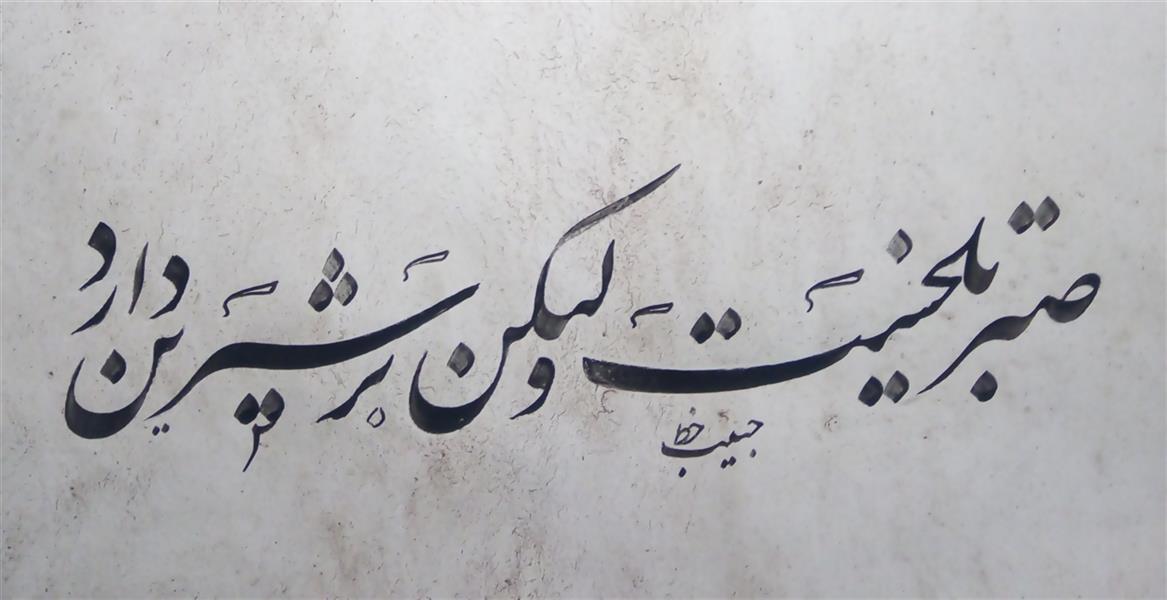 صبر تلخیست ولیکن بر شیرین دارد
حبیب خط